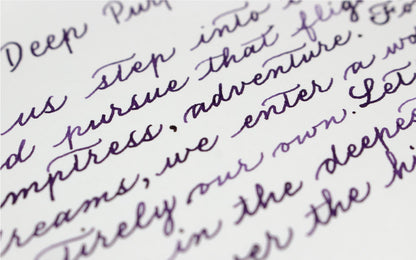 Deep Purp
us step into
d pursue that flig
mptress, adventure. Fo
reams, we enter a wo
tirely our own. Let
in the deepest
er the hi